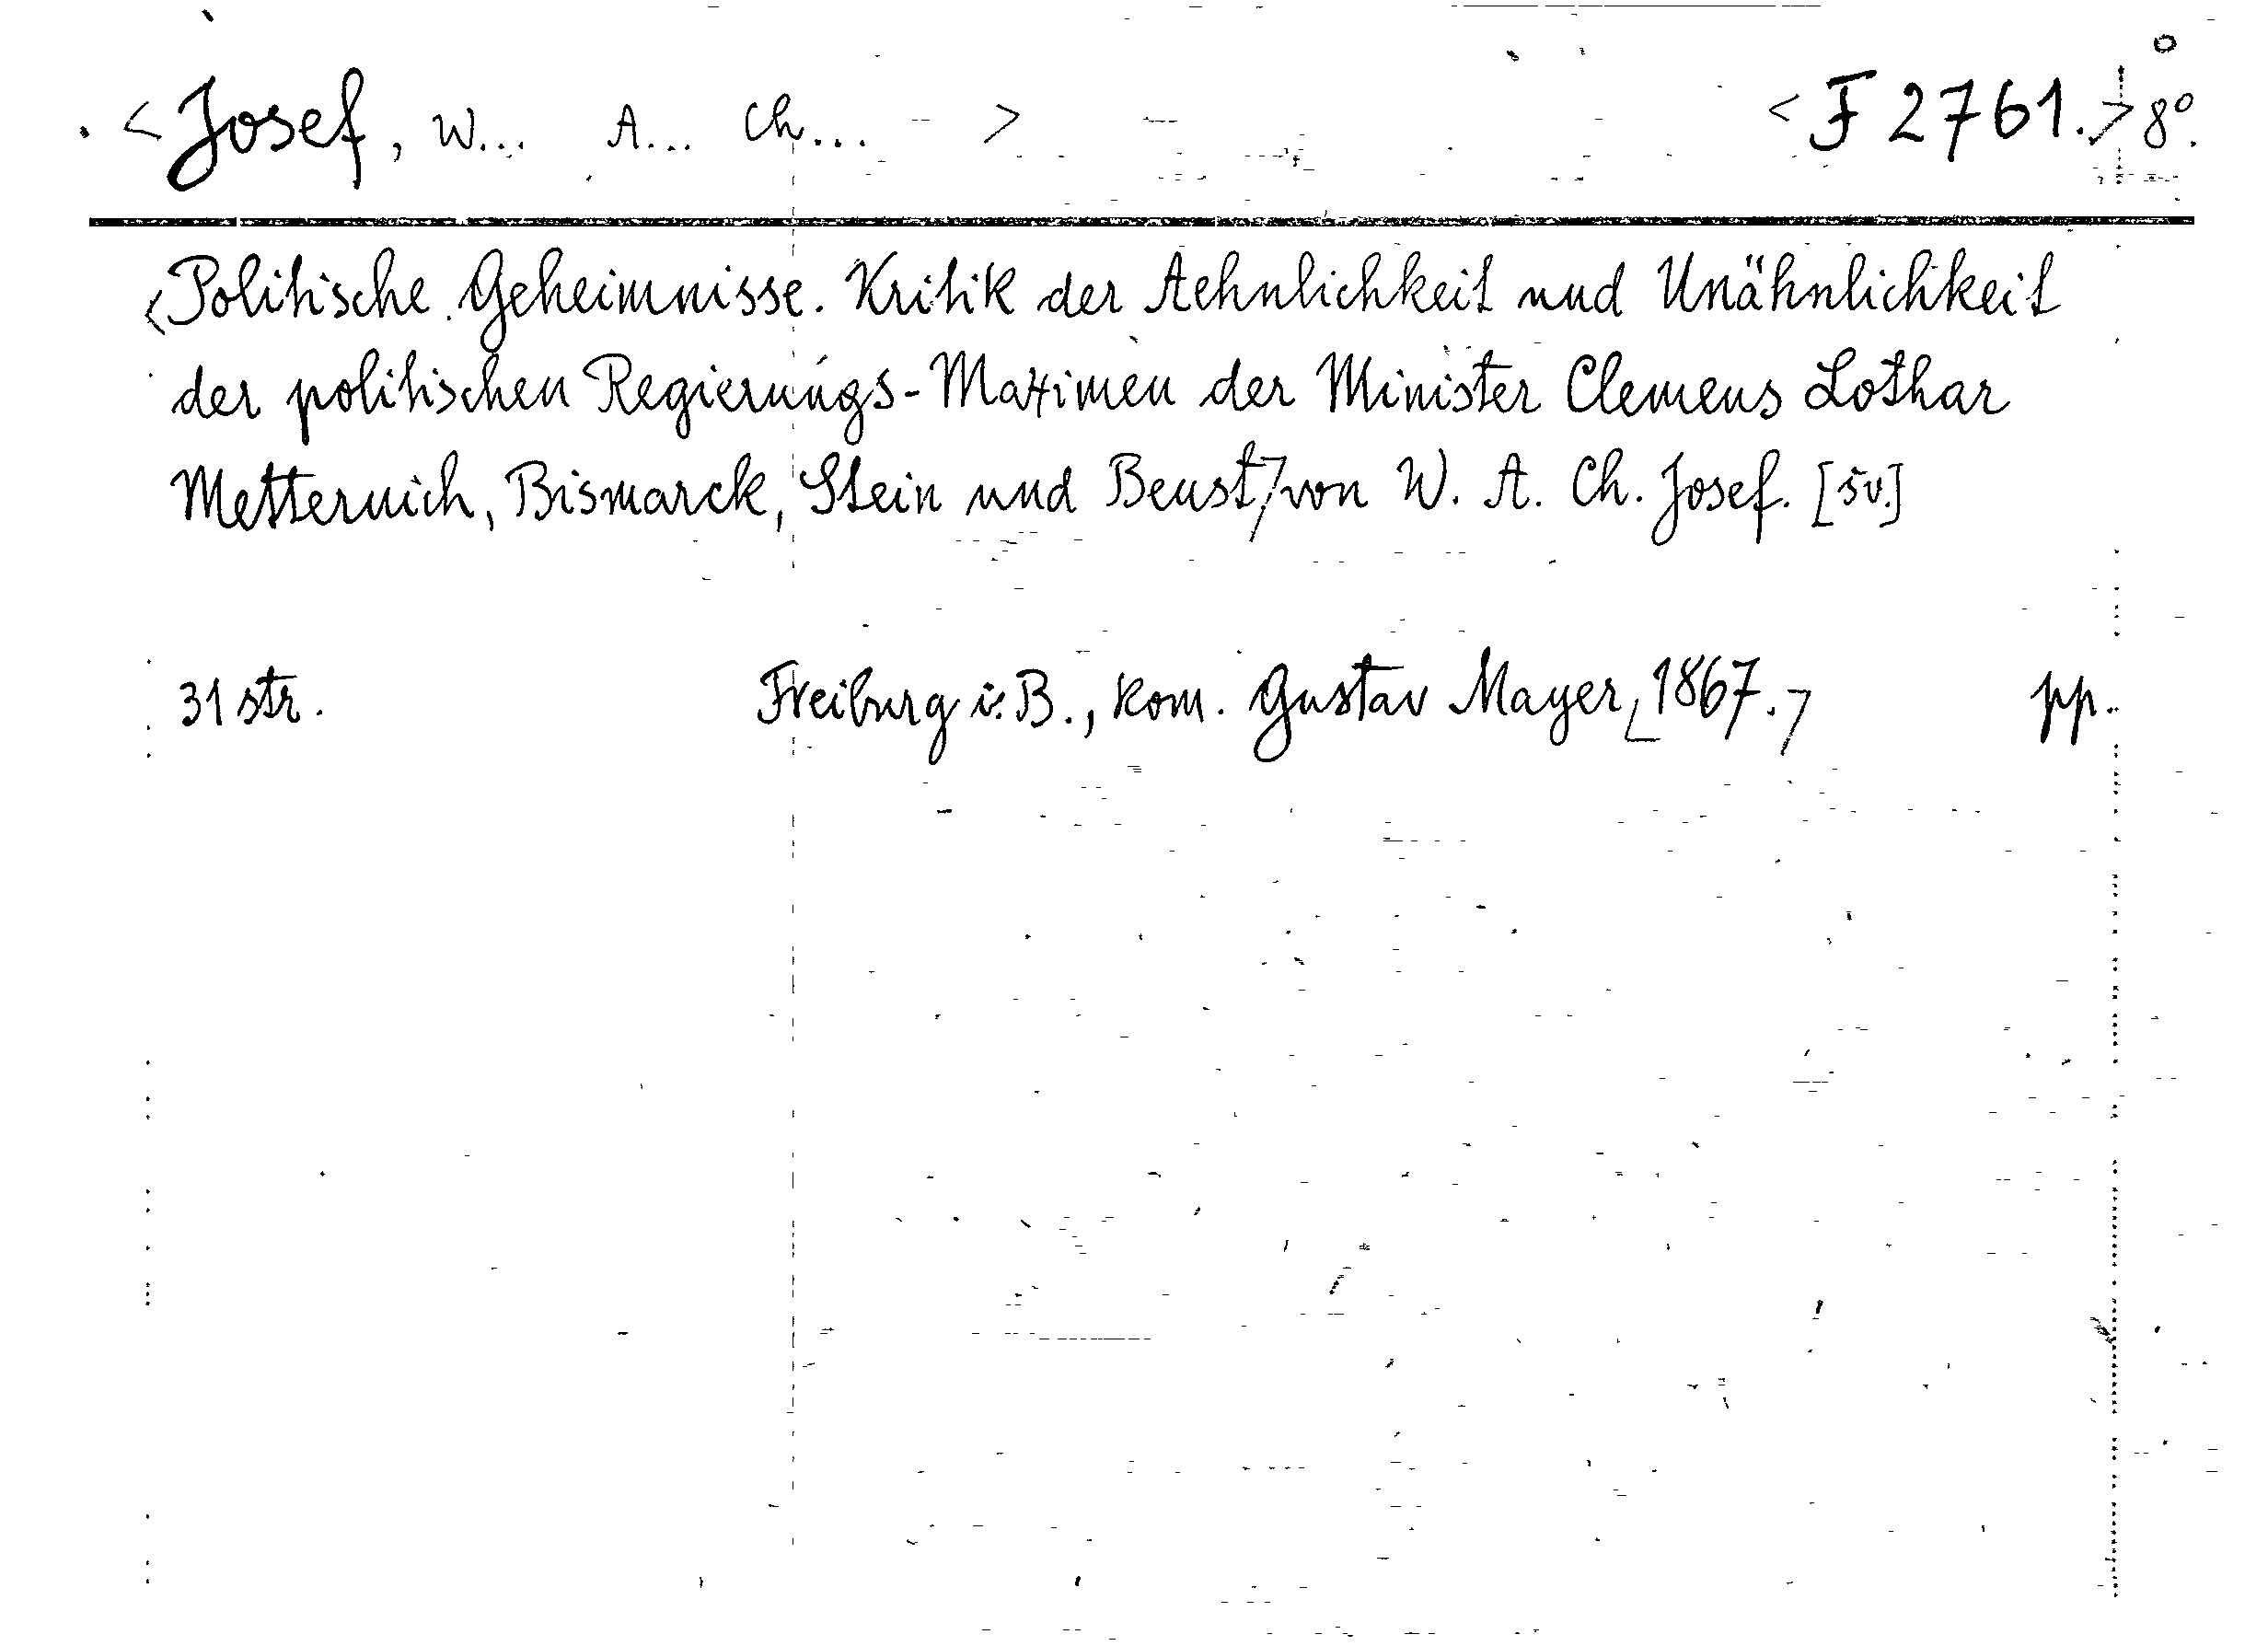 <Josef, W... A... Ch... > <F 2761.> 8º.
<Politische Geheimnisse. Kritik der Aehnlichkeit und Unähnlichkeit
der politischen Regierungs-Maximen der Minister Clemens Lothar
Metternich, Bismarck, Stein und Beust/von W. A. Ch. Josef. [sv.]
31 str. Freiburg i. B., kom. Gustav Mayer, 1867. pp.